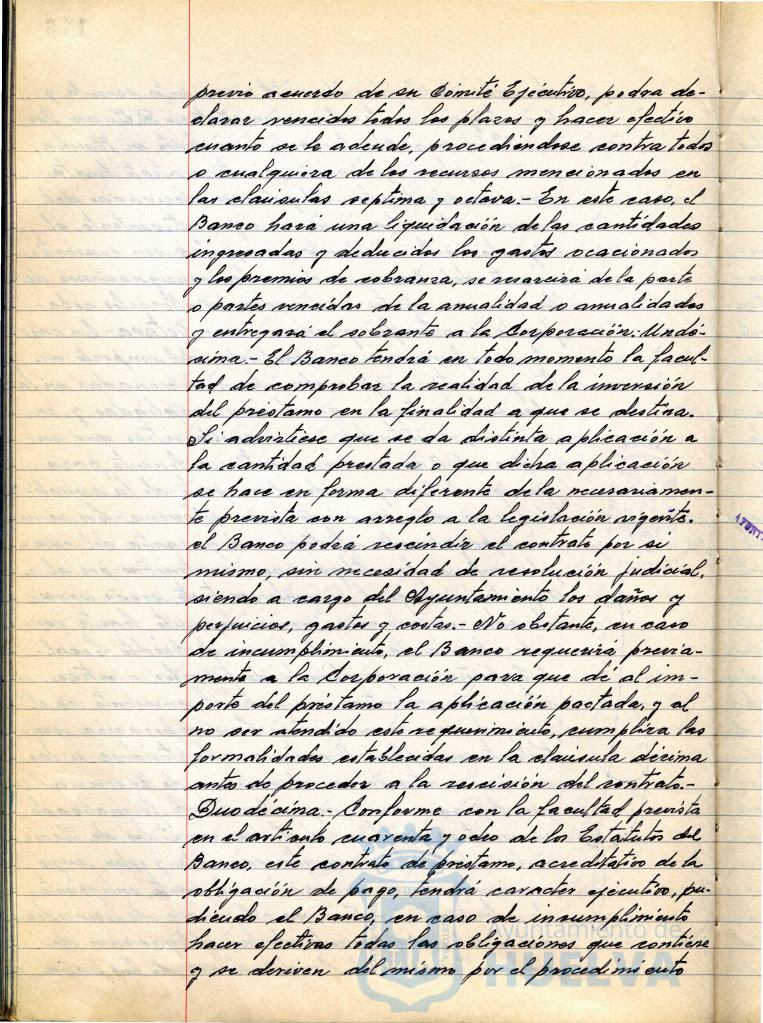 previo acuerdo de su Comité Ejecutivo, podra de-
clarar vencidos todos los plazos y hacer efectivo
cuanto se le adeude, procediendose contra todos
o cualquiera de los recursos mencionados en
las clausulas septima y octava.- En este caso, el
Banco hará una liquidación de las cantidades
ingresadas y deducidos los gastos ocacionados
y los premios de cobranza, se resarcirá de la parte
o partes vencidas de la anualidad o anualidades
y entregará el sobrante a la Corporación.- Undé-
cima.- El Banco tendrá en todo momento la facul-
tad de comprobar la realidad de la inversión
del préstamo en la finalidad a que se destina.
Si advirtiese que se da distinta aplicación a
la cantidad prestada o que dicha aplicación
se hace en forma diferente de la necesariamen-
te prevista con arreglo a la legislación vigente.
el Banco podrá rescindir el contrato por si
mismo, sin necesidad de resolución judicial,
siendo a cargo del Ayuntamiento los daños y
perjuicios, gastos y costas.- No obstante, en caso
de incumplimiento, el Banco requerirá previa-
mente a la Corporación para que dé al im-
porte del préstamo la aplicación pactada, y al
no ser atendido este requerimiento, cumplira las
formalidades establecidas en la clausula décima
antes de proceder a la rescisión del contrato.-
Duodécima.- Conforme con la facultad prevista
en el articulo cuarenta y ocho de los Estatutos del
Banco, este contrato de préstamo, acreditativo de la
obligación de pago, tendrá caracter ejecutivo, pu-
diendo el Banco, en caso de incumplimiento
hacer efectivas todas las obligaciones que contiene
y se deriven del mismo por el procedimiento
Ayuntamiento de
HUELVA